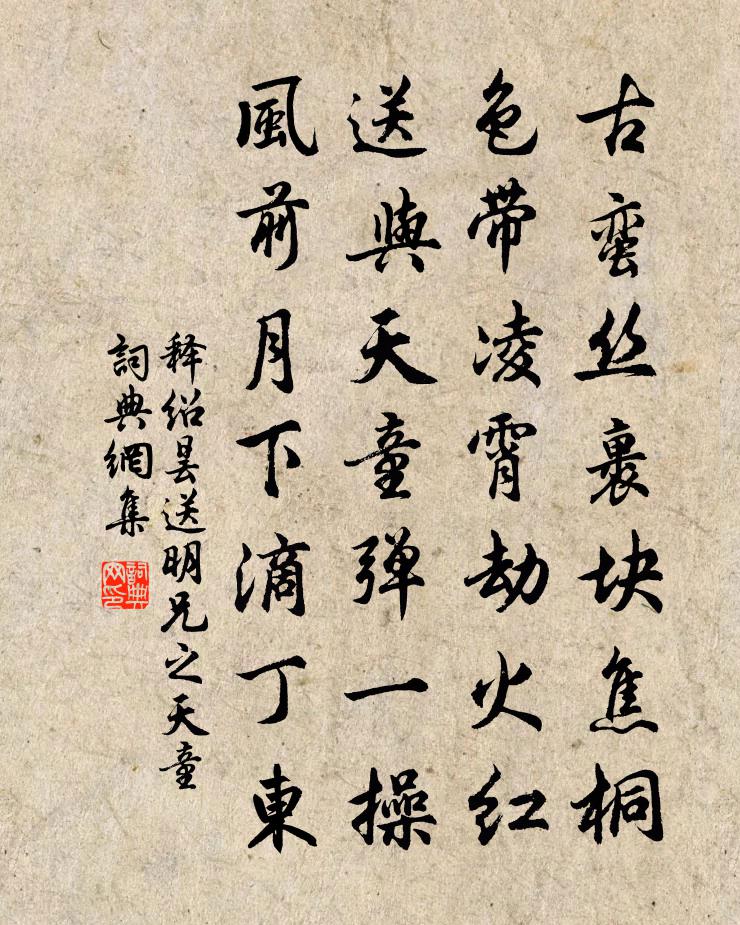 古蛮丝裹块焦桐
色带凌霄劫火红
送與天童弹一操
風前月下滴丁東
释绍昙送明兄之天童
詞典網集
詞典网印